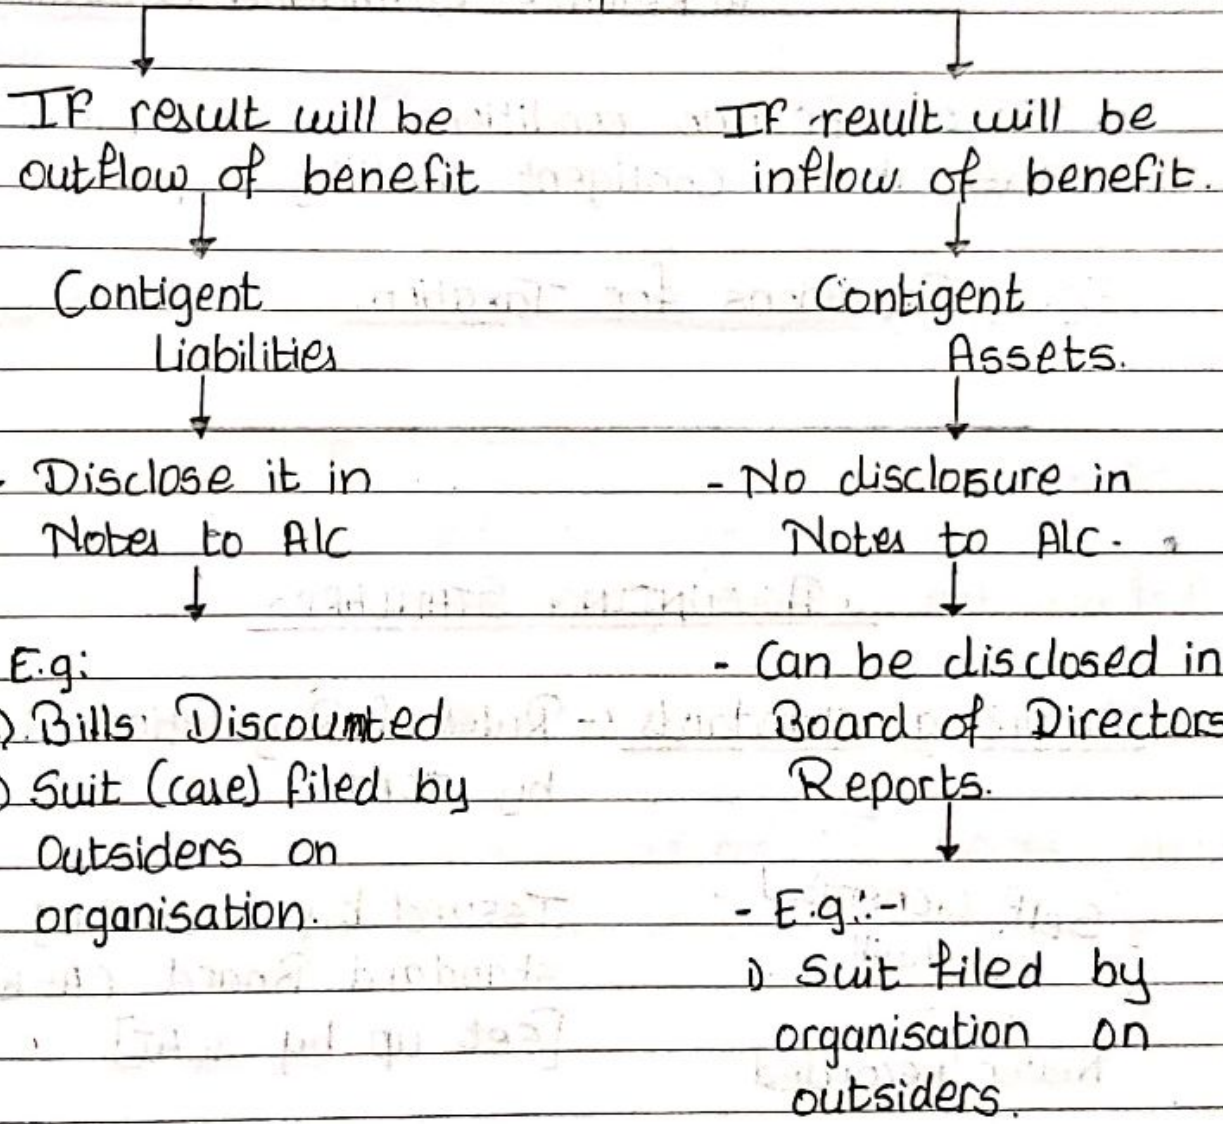 If result will be
outflow of benefit
Contigent
Liabilities
Disclose it in
Notes to A/C
E.g:
Bills Discounted
Suit (case) filed by
Outsiders on
organisation.
If result will be
inflow of benefit.
Contigent
Assets.
- No disclosure in
Notes to A/C.
- Can be disclosed in
Board of Directors
Reports.
- E.g:-
i) Suit filed by
organisation on
outsiders.